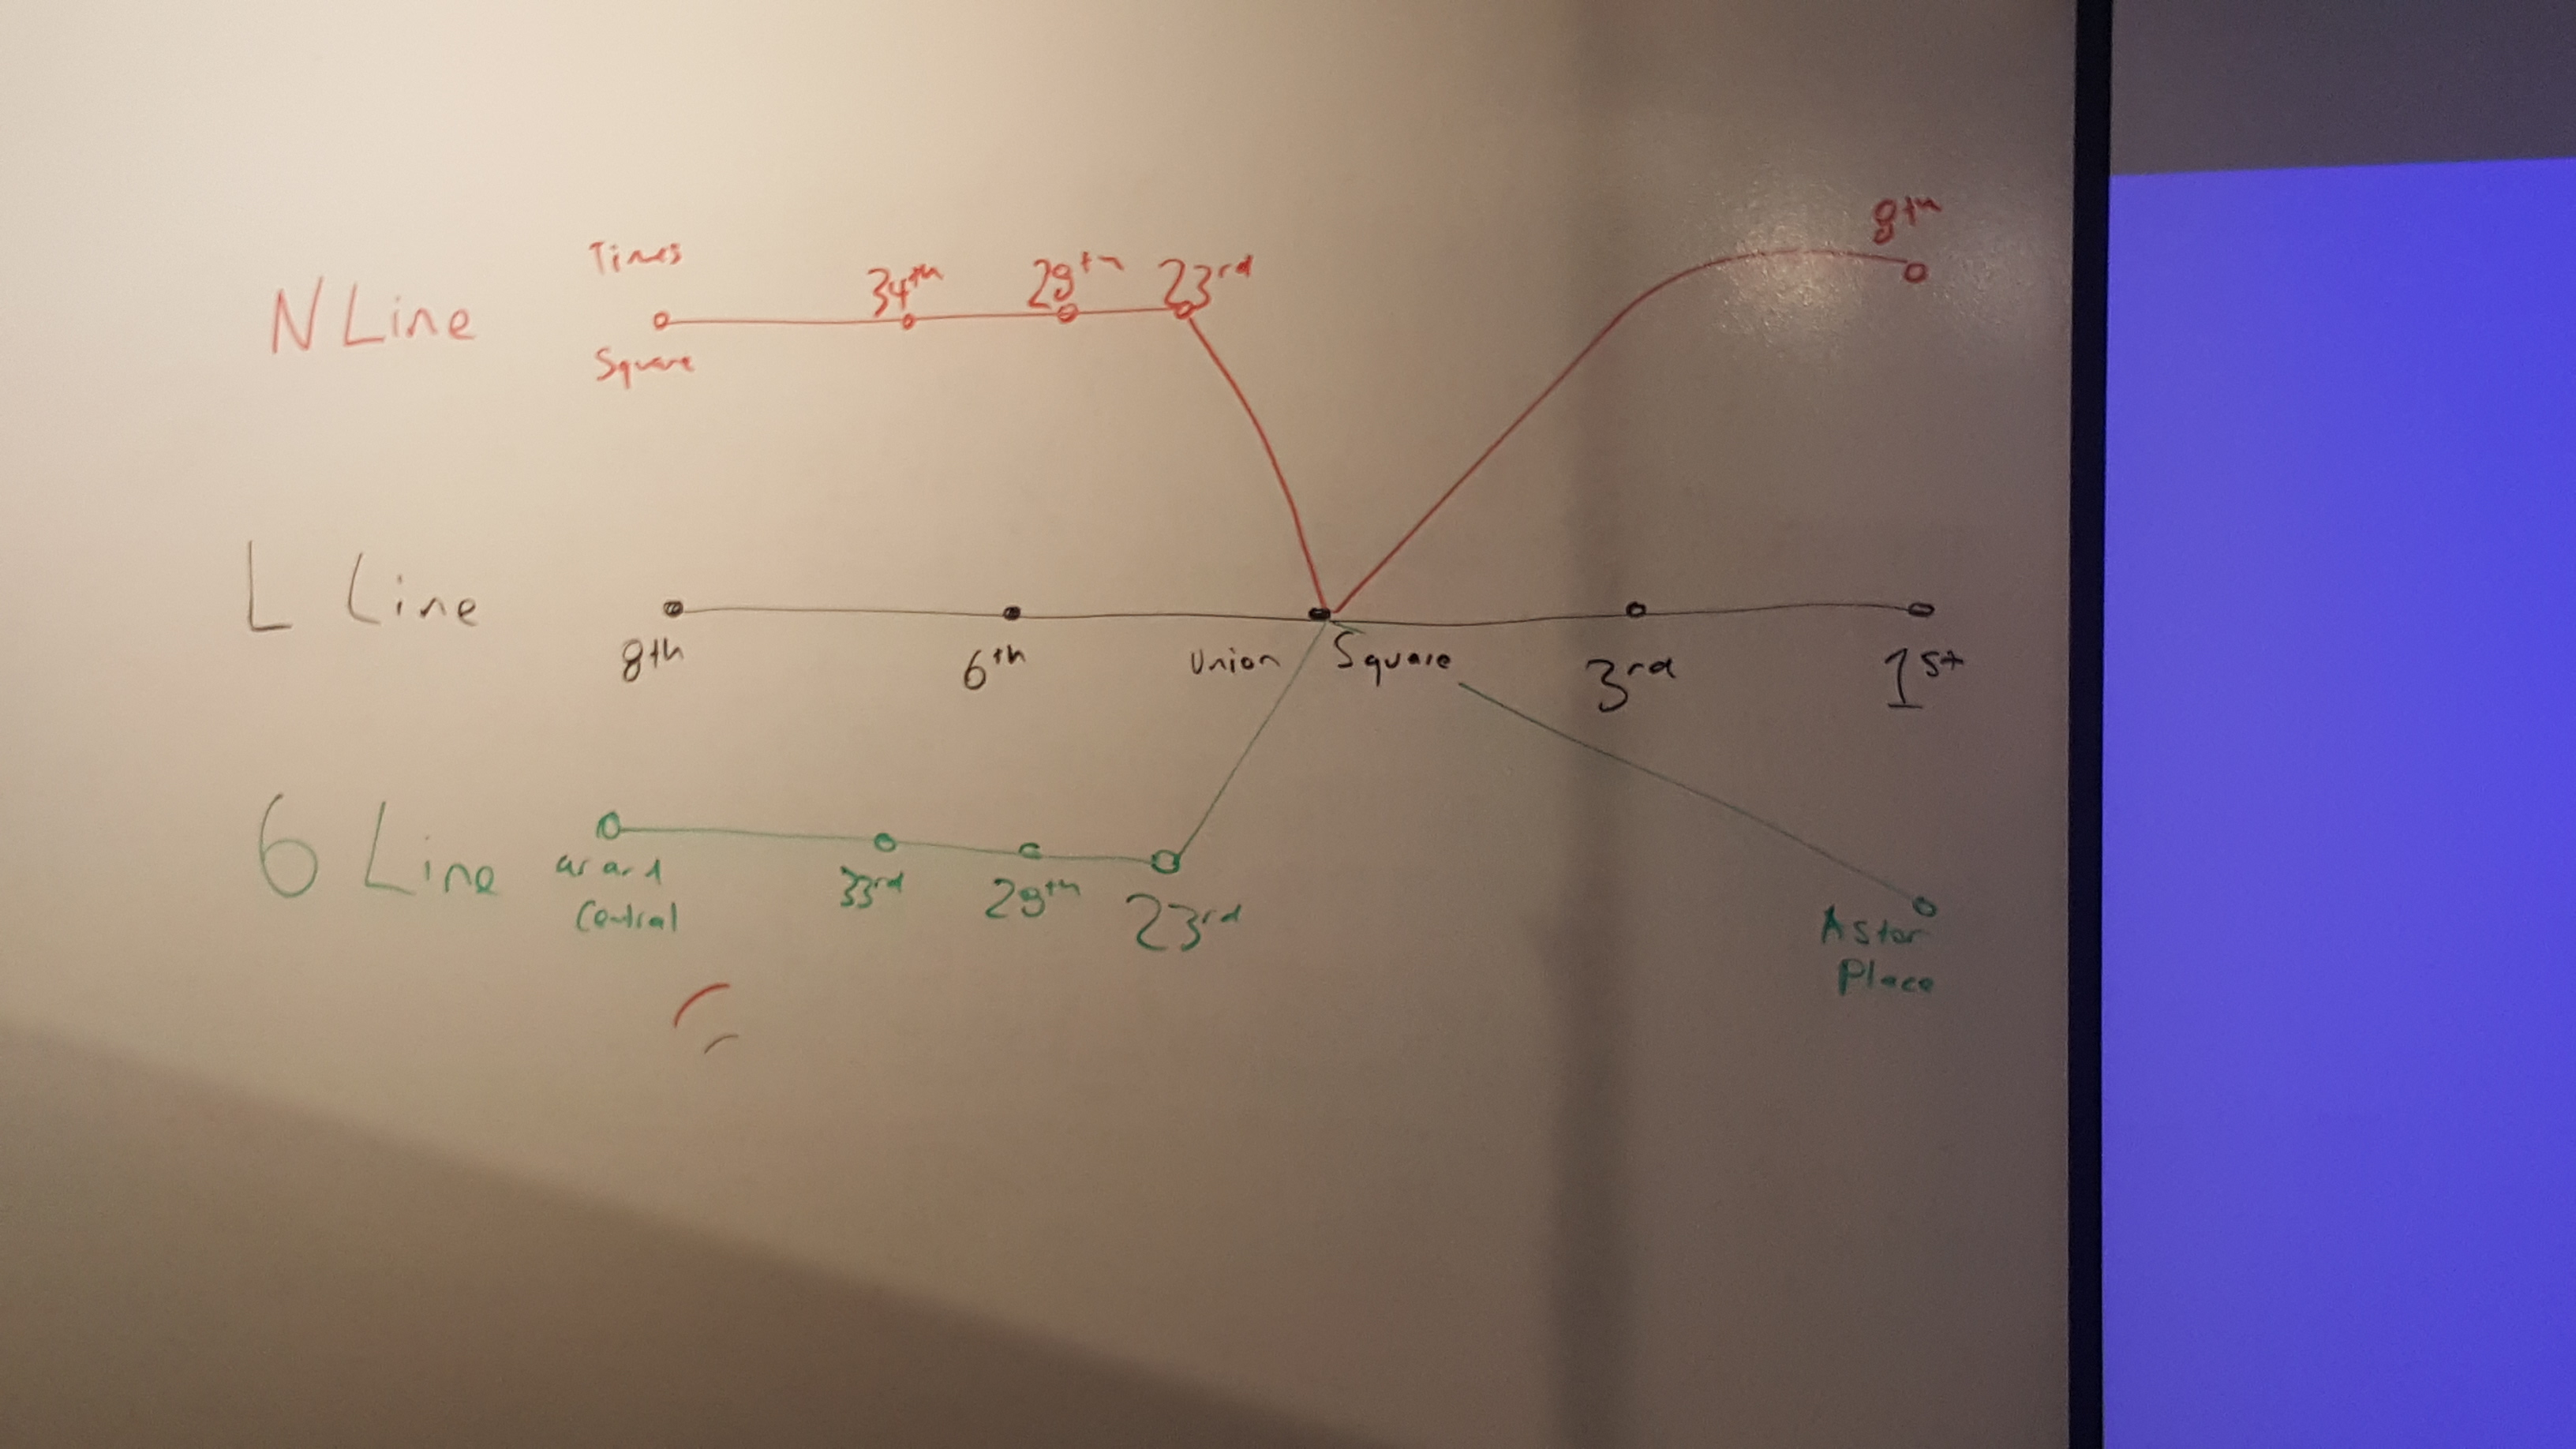 N Line
Times
Square
34th
28th
23rd
8th
L Line
8th
6th
Union Square
3rd
1st
6 Line
Grand
Central
33rd
28th
23rd
Astor
Place